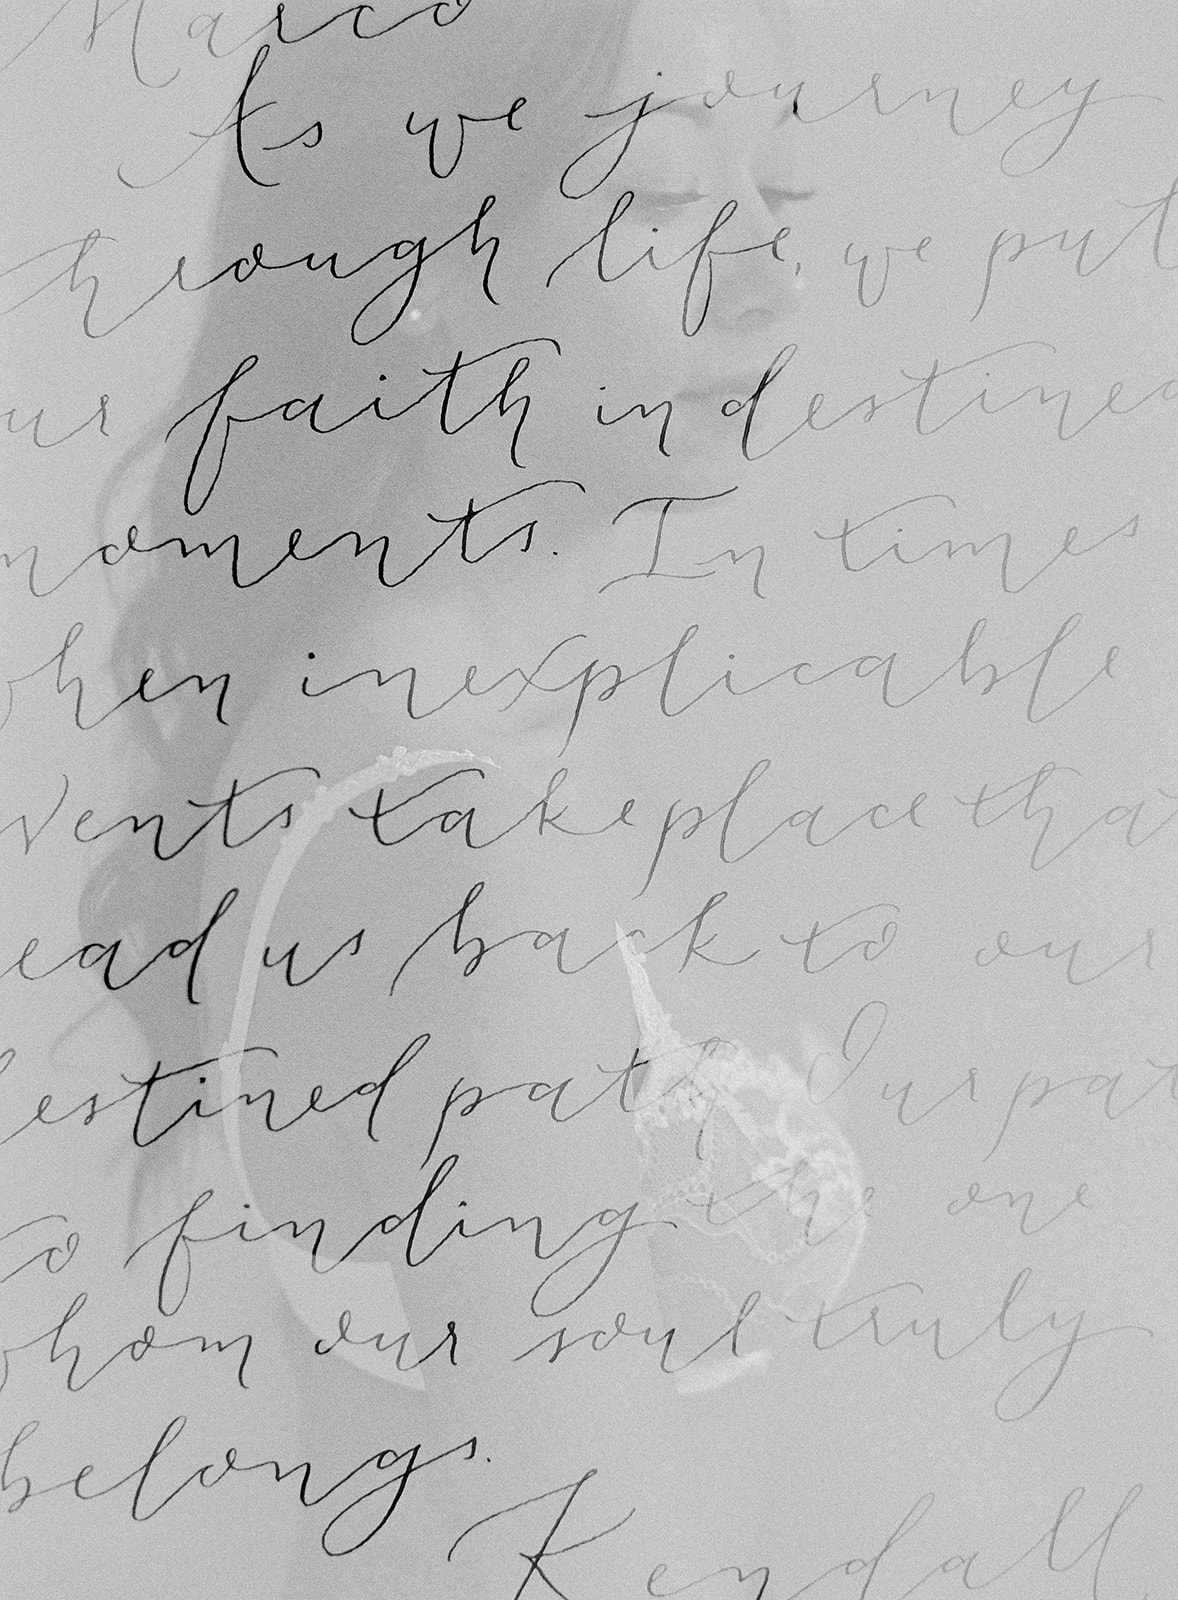 Marco
As we journey
hrough life, we put
ur faith in destined
moments. In times
when inexplicable
vents take place that
ead us back to our
destined path Our pat
to finding the one
whom our soul truly
belongs.
Kendall